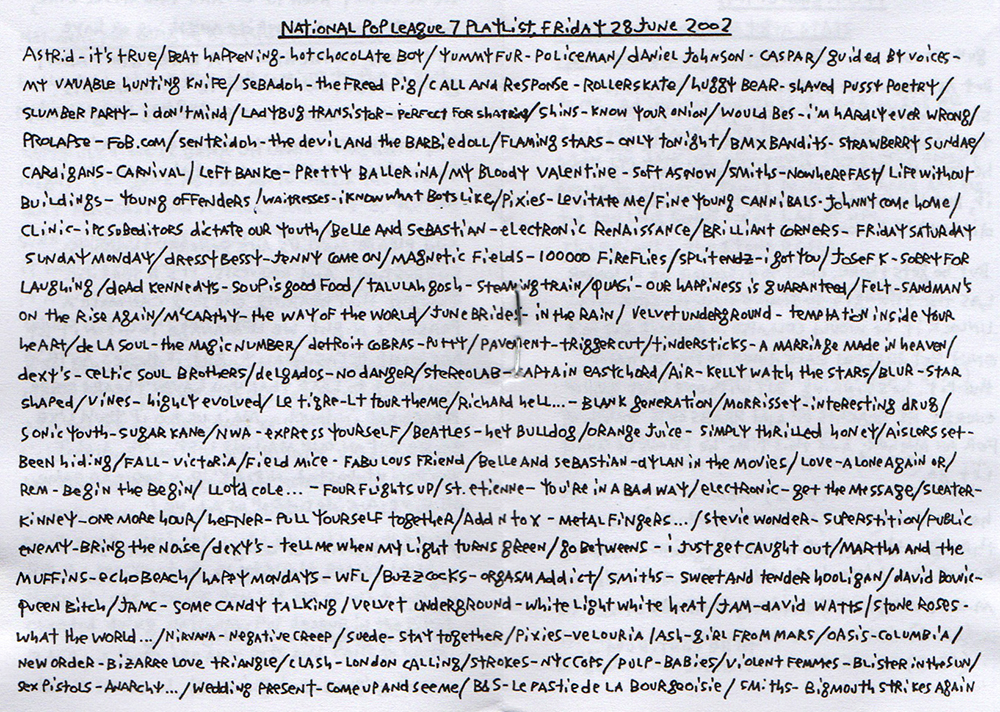 NATIONAL POP LEAGUE 7 PLAYLIST, FRIDAY 28 JUNE 2002
Astrid - it's true/Beat Happening - hot chocolate boy/Yummy Fur - Policeman/Daniel Johnson - Caspar/Guided by Voices -
My valuable hunting knife/Sebadoh - the freed pig/Call and Response - rollerskate/Huggy Bear - shaved pussy poetry/
Slumber Party - i don't mind/Ladybug Transistor - perfect for shattering/Shins - know your onion/Would Bes - i'm hardly ever wrong/
Prolapse - fob.com/Sentridoh - the devil and the barbie doll/Flaming Stars - only tonight/BMX Bandits - strawberry sundae/
Cardigans - carnival/Left Banke - pretty ballerina/My Bloody Valentine - soft as now/Smiths - nowhere fast/Life Without
Buildings - young offenders/Waitresses - i know what boys like/Pixies - levitate me/Fine Young Cannibals - Johnny come home/
Clinic - ipc subeditors dictate our youth/Belle and Sebastian - electronic renaissance/Brilliant Corners - Friday Saturday
Sunday Monday/Dressy Bessy - Jenny come on/Magnetic Fields - 100000 fireflies/Split Endz - i got you/Josef K - sorry for
laughing/Dead Kennedys - soup is good food/Talulah Gosh - steaming train/Quasi - our happiness is guaranteed/Felt - Sandman's
on the rise again/McCarthy - the way of the world/June Brides - in the rain/Velvet Underground - temptation inside your
heart/De La Soul - the magic number/Detroit Cobras - putty/Pavement - trigger cut/Tindersticks - a marriage made in heaven/
Dexy's - Celtic soul brothers/Delgados - no danger/Stereolab - captain easychord/Air - Kelly watch the stars/Blur - star
shaped/Vines - highly evolved/Le Tigre - LT tour theme/Richard Hell... - blank generation/Morrissey - interesting drug/
Sonic Youth - sugar kane/NWA - express yourself/Beatles - hey bulldog/Orange Juice - simply thrilled honey/Aislers Set -
been hiding/Fall - Victoria/Field Mice - fabulous friend/Belle and Sebastian - Dylan in the movies/Love - alone again or/
REM - begin the begin/Lloyd Cole... - four flights up/St. Etienne - you're in a bad way/Electronic - get the message/Sleater-
Kinney - one more hour/Hefner - pull yourself together/Add N to X - metal fingers.../Stevie Wonder - superstition/Public
Enemy - bring the noise/Dexy's - tell me when my light turns green/Go Betweens - i just get caught out/Martha and the
Muffins - echo beach/Happy Mondays - WFL/Buzzcocks - orgasm addict/Smiths - sweet and tender hooligan/David Bowie -
Queen bitch/JAMC - some candy talking/Velvet Underground - white light white heat/Jam - David Watts/Stone Roses -
what the world.../Nirvana - negative creep/Suede - stay together/Pixies - velouria/Ash - girl from mars/Oasis - columbia/
New Order - bizarre love triangle/Clash - London calling/Strokes - NYC cops/Pulp - babies/Violent Femmes - blister in the sun/
Sex Pistols - anarchy.../Wedding Present - come up and see me/B&S - le pastie de la bourgeoisie/Smiths - bigmouth strikes again